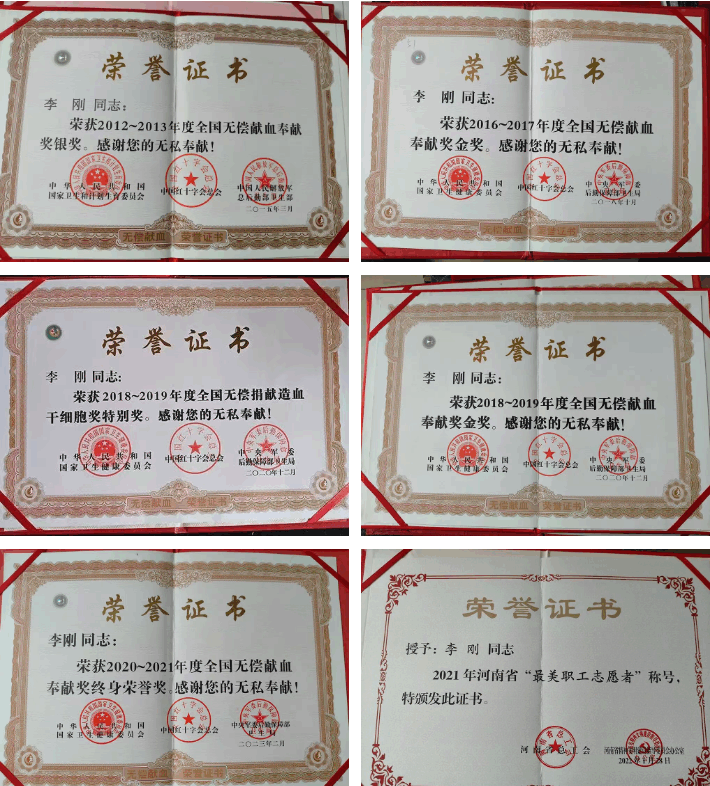 荣誉证书
李 刚 同志：
荣获2012~2013年度全国无偿献血奉献
奖银奖。感谢您的无私奉献！
中华人民共和国
国家卫生和计划生育委员会
中国红十字会总会
中国人民解放军
总后勤部卫生部
二〇一五年三月
无偿献血 荣誉证书
荣誉证书
李 刚 同志：
荣获2016~2017年度全国无偿献血
奉献奖金奖。感谢您的无私奉献！
中华人民共和国
国家卫生健康委员会
中国红十字会总会
中央军委
后勤保障部卫生局
二〇一八年十月
无偿献血 荣誉证书
荣誉证书
李 刚 同志：
荣获2018~2019年度全国无偿捐献造血
干细胞奖特别奖。感谢您的无私奉献！
中华人民共和国
国家卫生健康委员会
中国红十字会总会
中央军委
后勤保障部卫生局
二〇二〇年十二月
无偿献血 荣誉证书
荣誉证书
李 刚 同志：
荣获2018~2019年度全国无偿献血
奉献奖金奖。感谢您的无私奉献！
中华人民共和国
国家卫生健康委员会
中国红十字会总会
中央军委
后勤保障部卫生局
二〇二〇年十二月
无偿献血 荣誉证书
荣誉证书
李刚 同志：
荣获2020~2021年度全国无偿献血
奉献奖终身荣誉奖。感谢您的无私奉献！
中华人民共和国
国家卫生健康委员会
中国红十字会总会
中央军委后勤保障部
卫生局
二〇二三年二月
无偿献血 荣誉证书
荣誉证书
授予：李 刚 同志
2021年河南省“最美职工志愿者”称号，
特颁发此证书。
河南省总工会